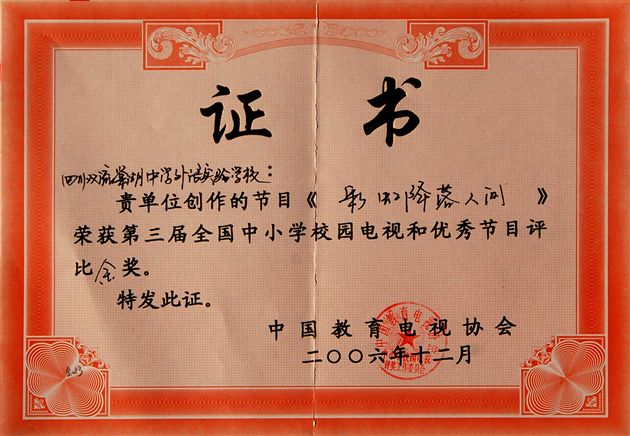 证 书
四川双流棠湖中学外语实验学校：
贵单位创作的节目《 彩虹降落人间 》
荣获第三届全国中小学校园电视和优秀节目评
比金奖。
特发此证。
中国教育电视协会
二〇〇六年十二月
中国教育电视协会